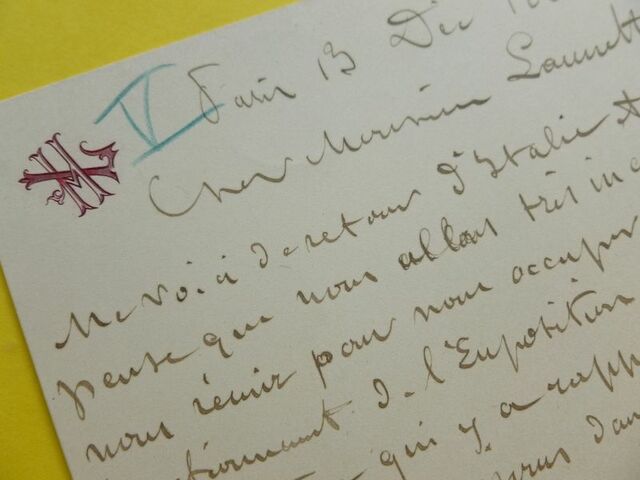 V
Paris 13 Dec
Cher Monsieur
Me voici de retour d'Italie &
pense que nous allons très in
nous réunir pour nous occuper
de l'Exposition
qui y a rapp
dans